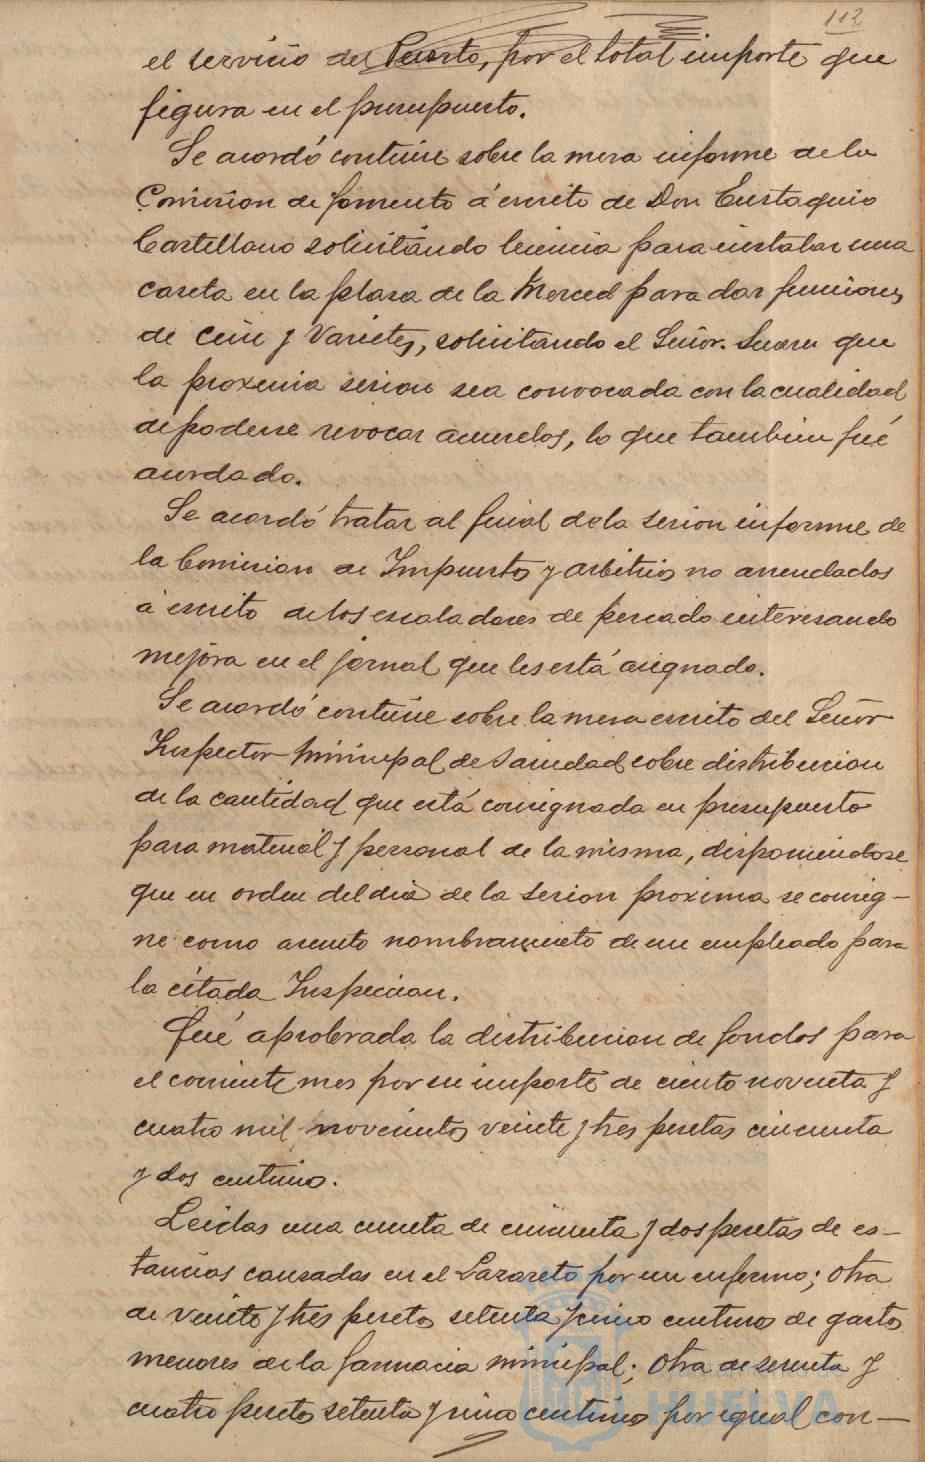 112
el servicio del Puerto, por el total importe que
figura en el presupuesto.
Se acordó continúe sobre la mesa informe de la
Comision de fomento á escrito de Don Eustaquio
Castellano solicitando licencia para instalar una
caseta en la plaza de la Merced para dar funciones
de Cine y Varietes, solicitando el Señor. Suarez que
la proxima sesion sea convocada con la cualidad
de poderse revocar acuerdos, lo que tambien fué
acordado.
Se acordó tratar al final de la sesion informe de
la Comision de Impuestos y arbitrios no arrendados
á escrito de los escaladores de pescado interesando
mejora en el jornal que les está asignado.
Se acordó continúe sobre la mesa escrito del Señor
Inspector Municipal de Sanidad sobre distribucion
de la cantidad que está consignada en presupuesto
para material y personal de la misma, disponiendose
que en orden del dia de la sesion proxima se consig-
ne como asunto nombramiento de un empleado para
la citada Inspeccion.
Fué aprobada la distribucion de fondos para
el corriente mes por su importe de ciento noventa y
cuatro mil novecientos veinte y tres pesetas cincuenta
y dos centimos.
Leidas una cuenta de cincuenta y dos pesetas de es-
tancias causadas en el Lazareto por un enfermo; otra
de veinte y tres pesetas setenta y cinco centimos de gastos
menores de la farmacia municipal; Otra de sesenta y
cuatro pesetas setenta y cinco centimos por igual con-
Ayuntamiento de
HUELVA